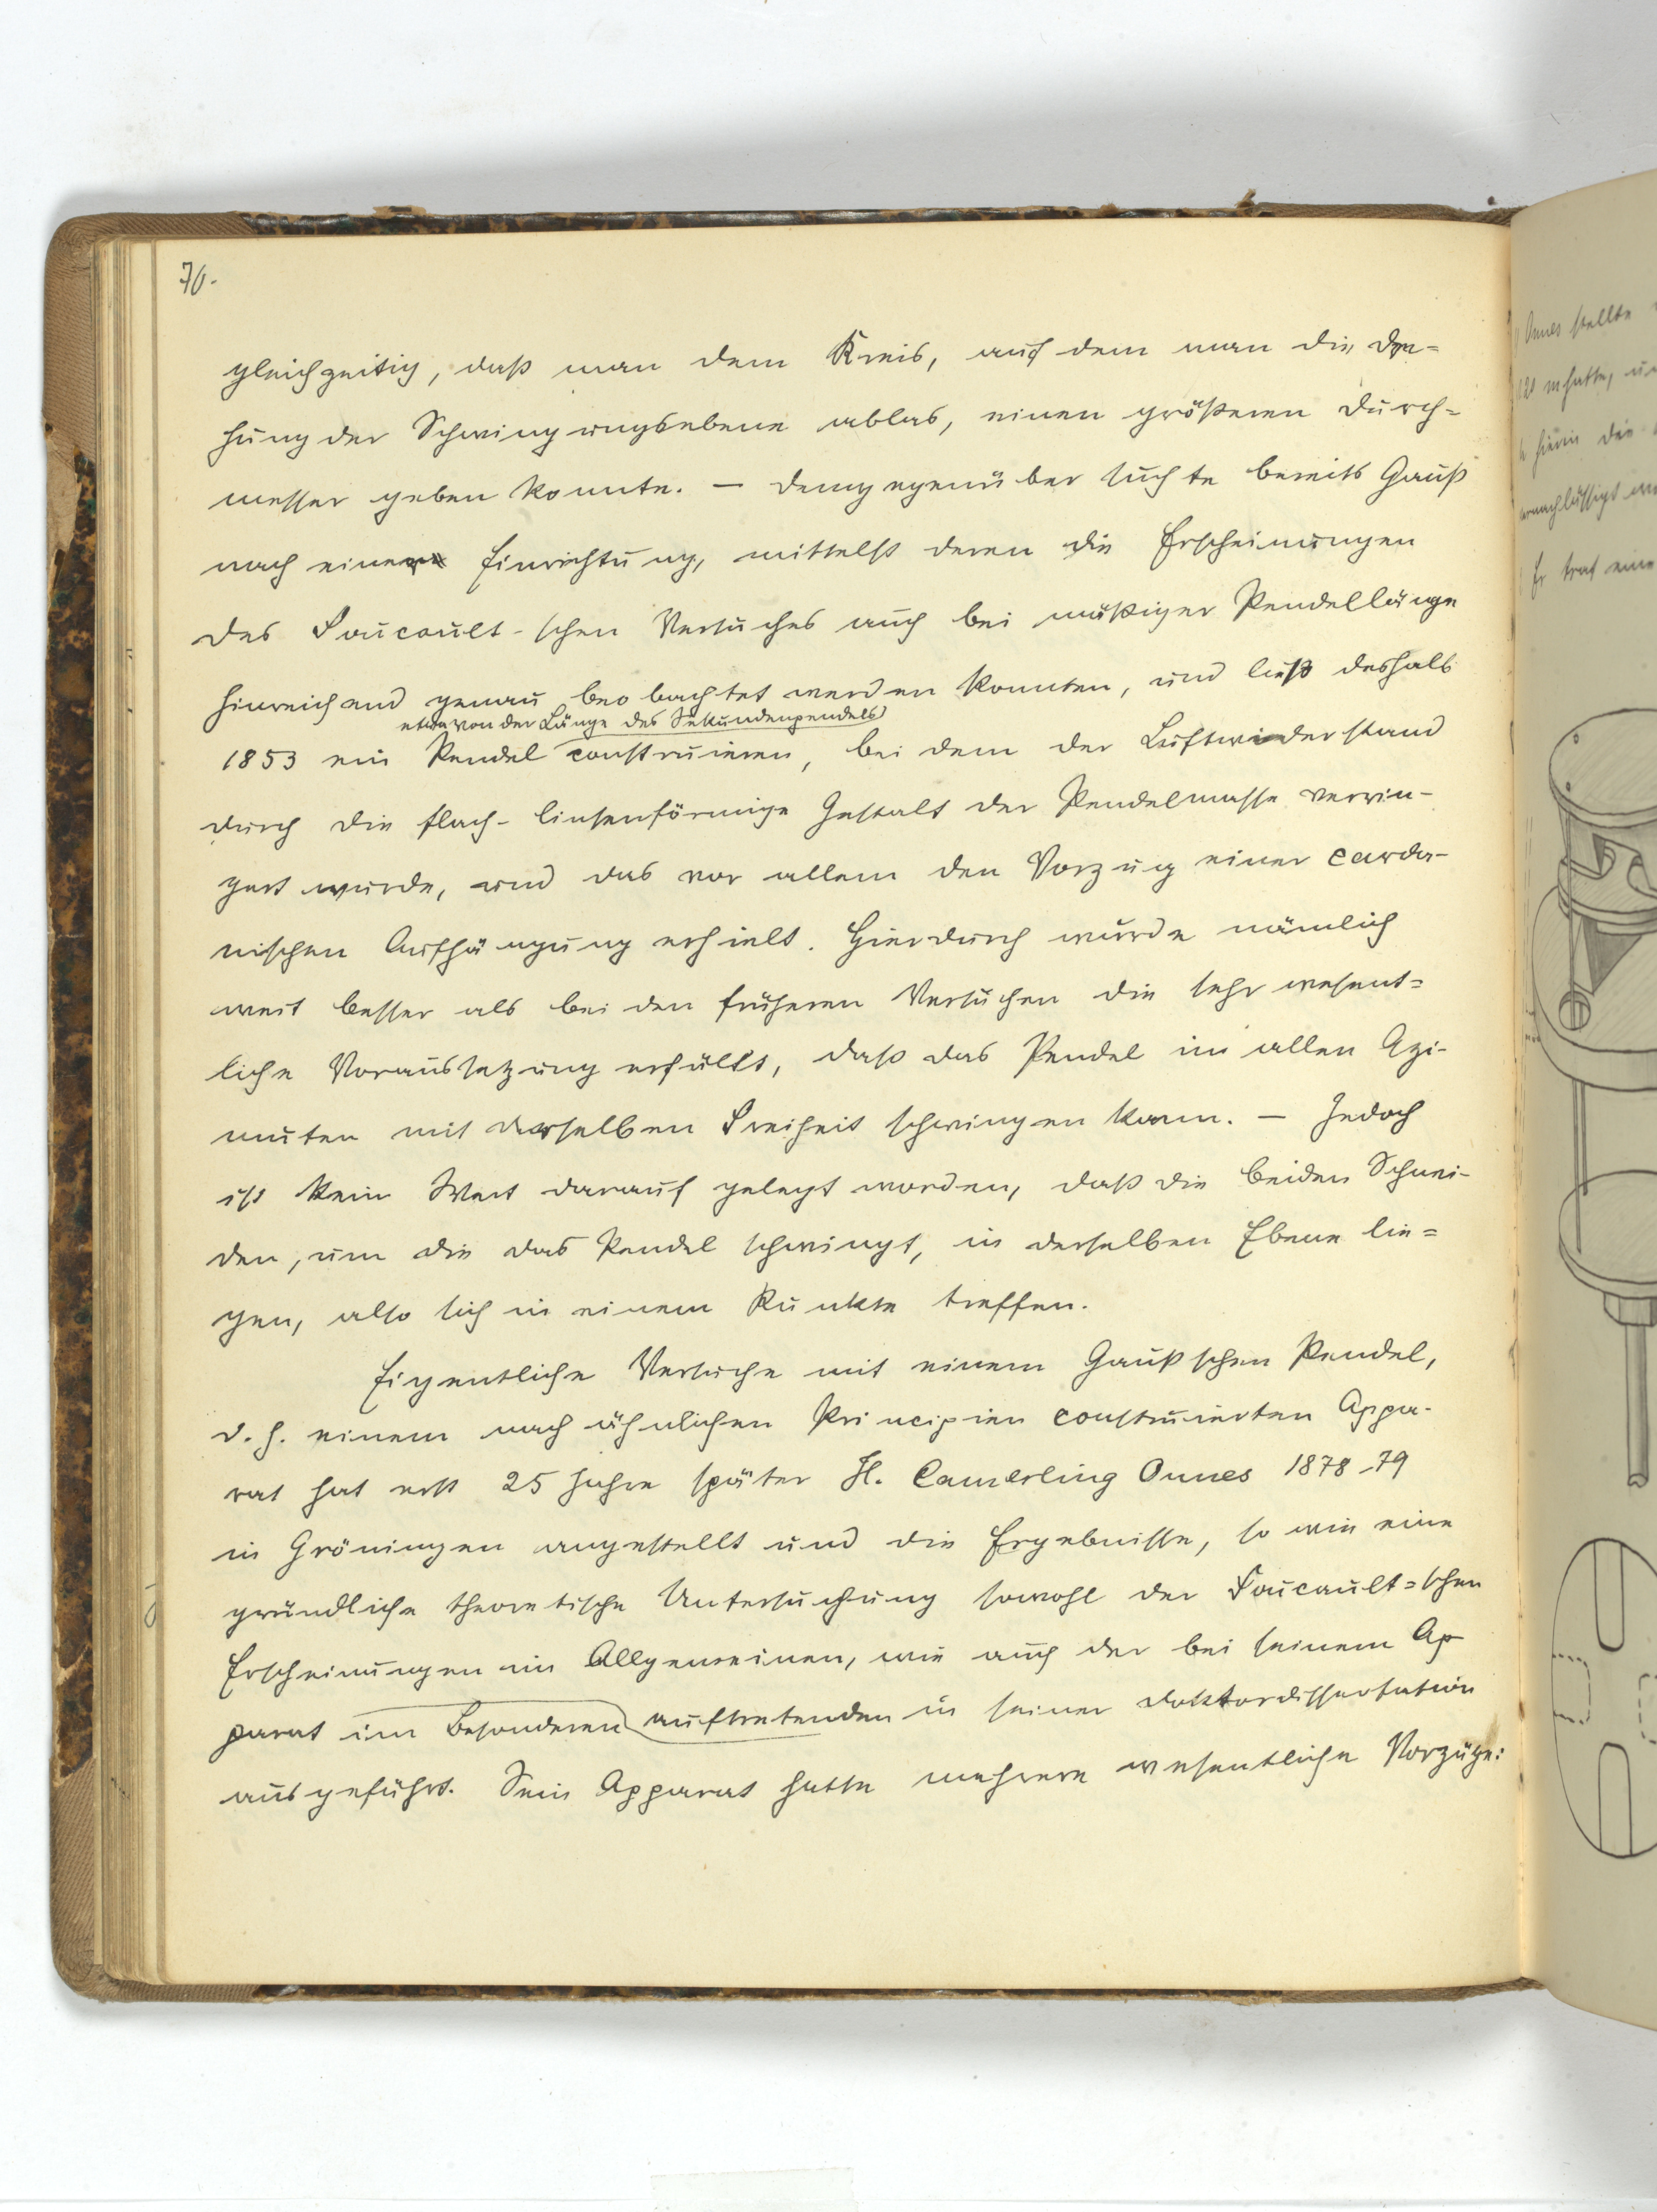 70.
gleichzeitig, daß man dem Kreis, auf dem man die Dre-
hung der Schwingungsebene ablas, einen größeren Durch-
messer geben konnte. — Demgegenüber suchte bereits Gauß
nach einer Einrichtung, mittelst deren die Erscheinungen
des Foucault-schen Versuches auch bei mäßiger Pendellänge
hinreichend genau beobachtet werden konnten, und ließ deshalb
etwa von der Länge des Sekundenpendels
1853 ein Pendel construieren, bei dem der Luftwiderstand
durch die flach-linsenförmige Gestalt der Pendelmasse verrin-
gert wurde, und das vor allem den Vorzug einer carda-
nischen Aufhängung erhielt. Hierdurch wurde nämlich
weit besser als bei den früheren Versuchen die sehr wesent-
liche Voraussetzung erfüllt, daß das Pendel in allen Azi-
muten mit derselben Freiheit schwingen kann. — Jedoch
ist kein Wert darauf gelegt worden, daß die beiden Schnei-
den, um die das Pendel schwingt, in derselben Ebene lie-
gen, also sich in einem Punkte treffen.
Eigentliche Versuche mit einem Gaußschen Pendel,
d. h. einem nach ähnlichen Principien construierten Appa-
rat hat erst 25 Jahre später H. Camerling Onnes 1878-79
in Gröningen angestellt und die Ergebnisse, so wie eine
gründliche theoretische Untersuchung sowohl der Foucault-schen
Erscheinungen im Allgemeinen, wie auch der bei seinem Ap
parat im Besonderen auftretenden in seiner Doktordissertation
ausgeführt. Sein Apparat hatte mehrere wesentliche Vorzüge:
Onnes stellte
hierin die
Er traf eine